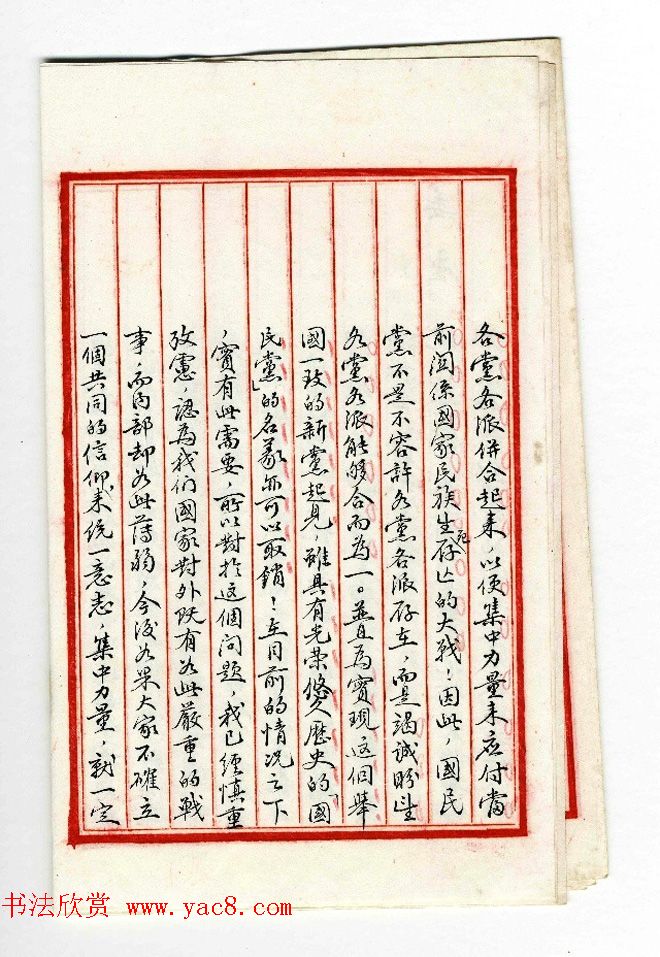 各黨各派併合起来，以便集中力量来应付當
前関係國家民族生存危亡的大戰！因此，國民
黨不是不容許各黨各派存在，而是竭誠盼望
各黨各派能够合而為一。並且為實現這個舉
國一致的新黨起見，雖具有光荣悠久歷史的「國
民黨」的名義亦可以取銷！在目前的情况之下
，實有此需要，所以對於這個问題，我已經慎重
攷慮，認為我们國家對外既有如此嚴重的戰
事，而内部却如此薄弱，今後如果大家不確立
一個共同的信仰来統一意志，集中力量，就一定
书法欣赏 www.yac8.com